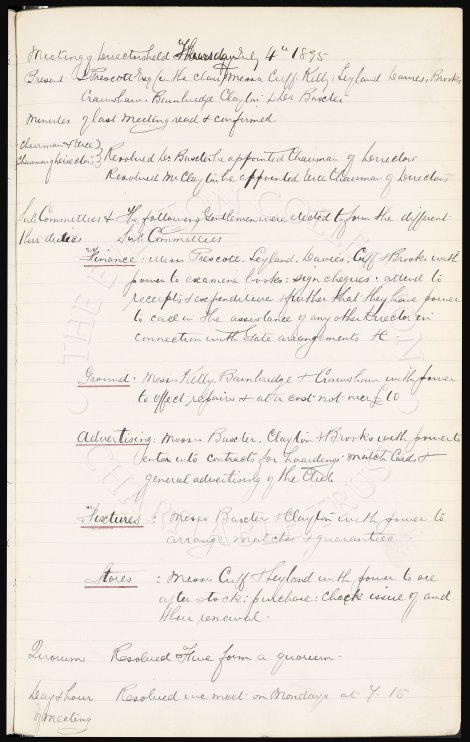 Meeting of Directors held Thursday July 4th 1895
Present J Prescott Esq (in the chair) Messrs Cuff, Kelly, Leyland, Davies, Brooks
Crawshaw, Bainbridge Clayton & Dr Baxter
Minutes of last Meeting read & confirmed
Chairman & Vice
Chairman of Directors
Resolved Dr Baxter be appointed Chairman of Directors
Resolved Mr Clayton be appointed Vice Chairman of Directors
Sub Committees & The following Gentlemen were elected to form the different
their duties Sub Committees
Finance: Messrs Prescott, Leyland, Davies, Cuff & Brooks with
power to examine books: sign cheques: attend to
receipts & expenditure & further that they have power
to call in the assistance of any other Director in
connection with Gate arrangements &c.
Ground: Messrs Kelly, Bainbridge & Crawshaw with power
to effect repairs & at a cost not over £10
Advertising: Messrs Baxter, Clayton & Brooks with power to
enter into contracts for hoardings: Match Cards &
general advertising of the Club
Fixtures: Messrs Baxter & Clayton with power to
arrange matches & guarantees
Stores: Messrs Cuff & Leyland with power to see
after stock: purchase: check issue of and
their renewal.
Quorum Resolved Five form a quorum
Day & hour Resolved we meet on Mondays at 7.15
of Meeting